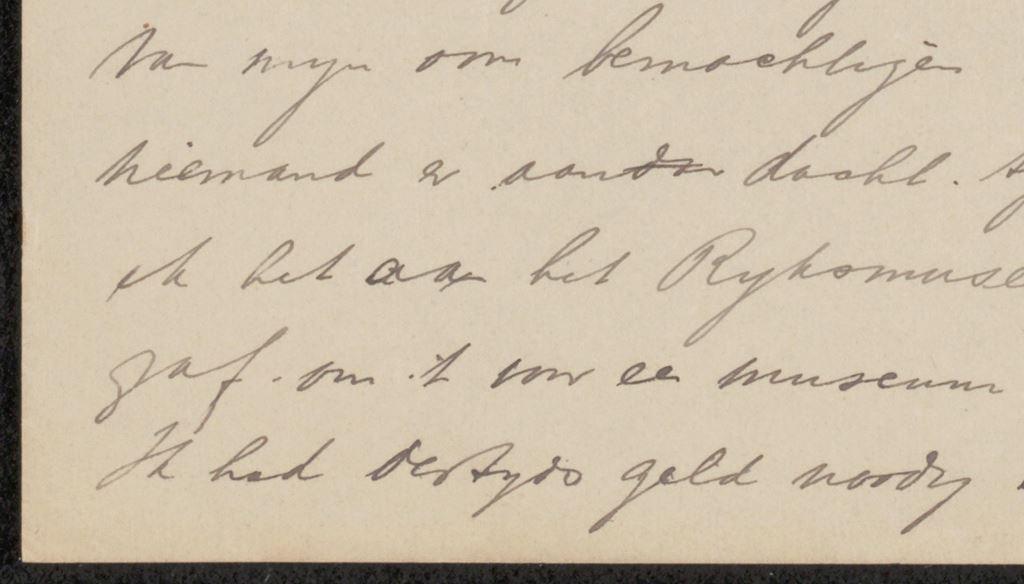 van myn oom bemachtigen
niemand er aan dacht.
ik het aan het Ryksmuse
gaf. om 't voor een museum
Ik had destyds geld noodig